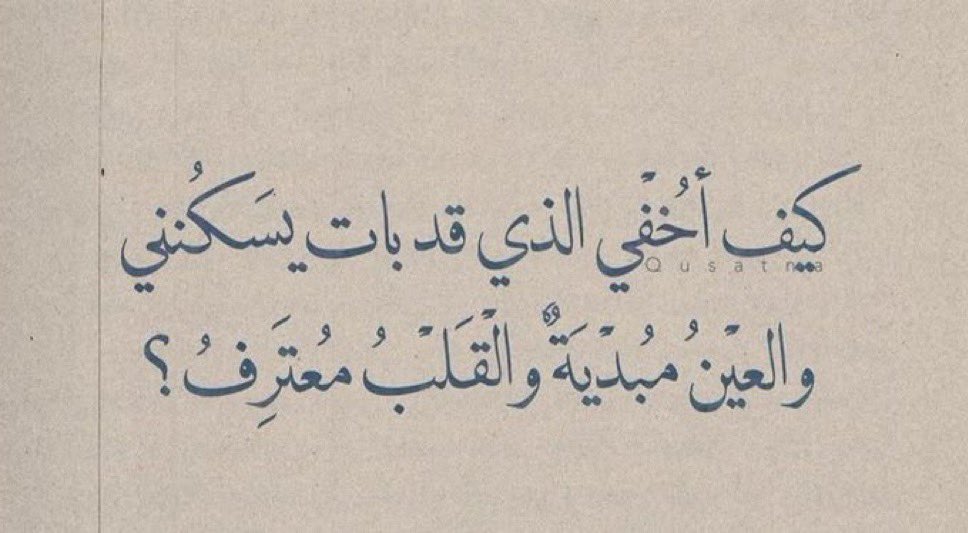 كيف أُخْفْي الذي قد بات يسَكُنني
Qusatna
والعيْنُ مُبْديَةٌ والْقَلْبُ مُعتَرِفُ؟